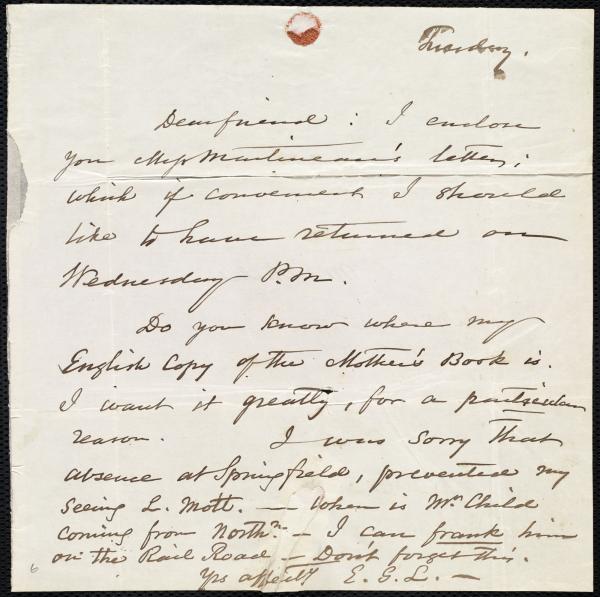 Tuesday.
Dear friend: I enclose
you Miss Martineau's letter;
which if convenient I should
like to have returned on
Wednesday P.M.
Do you know where my
English Copy of the Mother's Book is.
I want it greatly, for a particular
reason. I was sorry that
absence at Springfield, prevented my
seeing L. Mott. — When is Mr. Child
coming from Northn. — I can frank him
on the Rail Road — Don't forget this.
Yrs affectly E. G. L. —
6